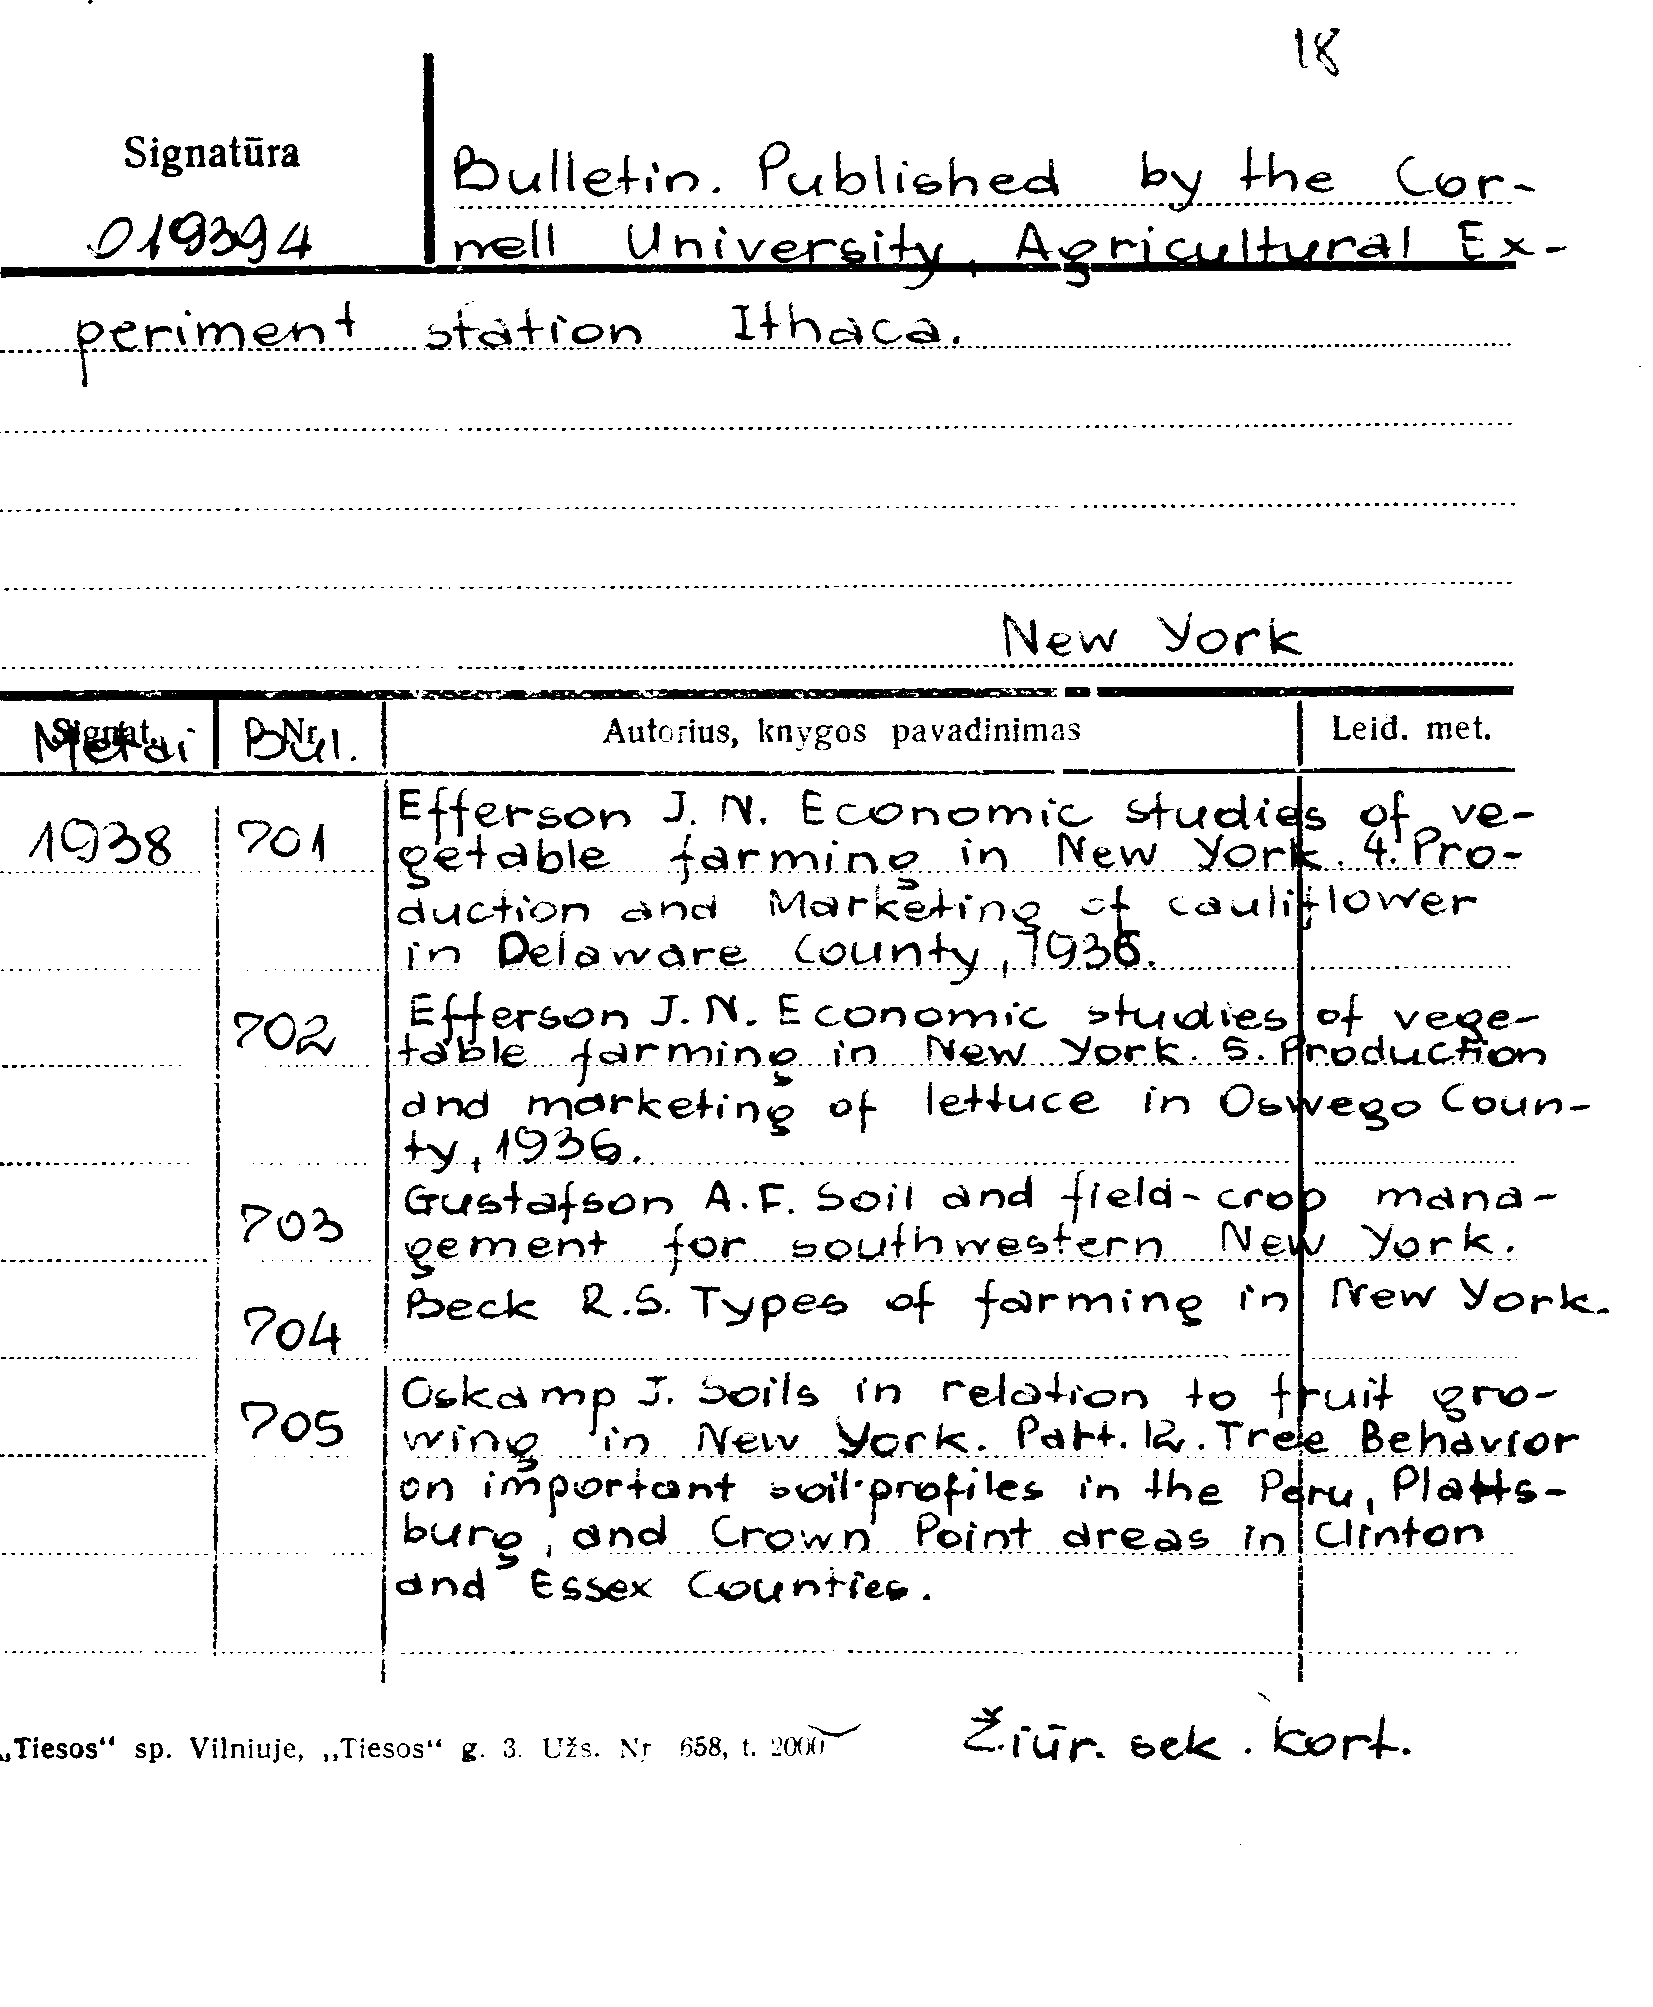 18
Signatūra
019394
Bulletin. Published by the Cor-
nell University, Agricultural Ex-
periment station Ithaca.
New York
Signat. Metai Nr. Bul. Autorius, knygos pavadinimas Leid. met.
1938 701 Efferson J. N. Economic studies of ve-
getable farming in New York. 4. Pro-
duction and Marketing of cauliflower
in Delaware County, 1936.
702 Efferson J. N. Economic studies of vege-
table farming in New York. 5. Production
and marketing of lettuce in Oswego Coun-
ty, 1936.
703 Gustafson A. F. Soil and field-crop mana-
gement for southwestern New York.
704 Beck R. S. Types of farming in New York.
705 Oskamp J. Soils in relation to fruit gro-
wing in New York. Part. 12. Tree Behavior
on important soil-profiles in the Peru, Platts-
burg, and Crown Point areas in Clinton
and Essex Counties.
„Tiesos“ sp. Vilniuje, „Tiesos“ g. 3. Užs. Nr 658, t. 2000
Žiūr. sek. kort.